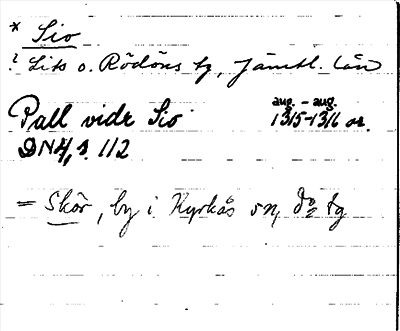 * Sio
? Lits o. Rödöns tg, Jämtl. län
aug. – aug.
Pall vidr Sio 1315–1316 or.
DN 4, s. 112
= Skör, by i Kyrkås sn, do tg